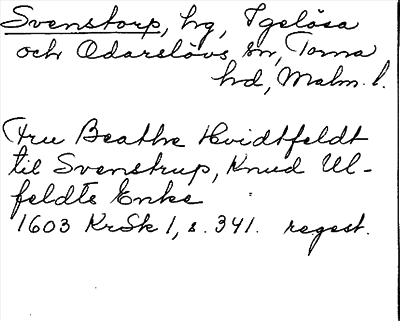 Svenstorp, hg, Igelösa
och Odarslövs sn, Torna
hd, Malm. l.
Fru Beathe Hvidtfeldt
til Svenstrup, Knud Ul-
feldts Enke
1603 KrSk 1, s. 341. regest.